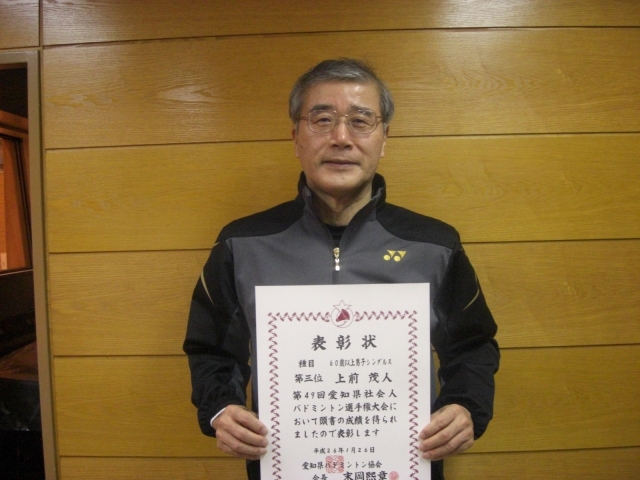 表彰状
種目 60歳以上男子シングルス
第三位 上前 茂人
第49回愛知県社会人
バドミントン選手権大会に
おいて頭書の成績を得られ
ましたので表彰します
平成26年1月26日
愛知県バドミントン協会
会長 末岡熙章